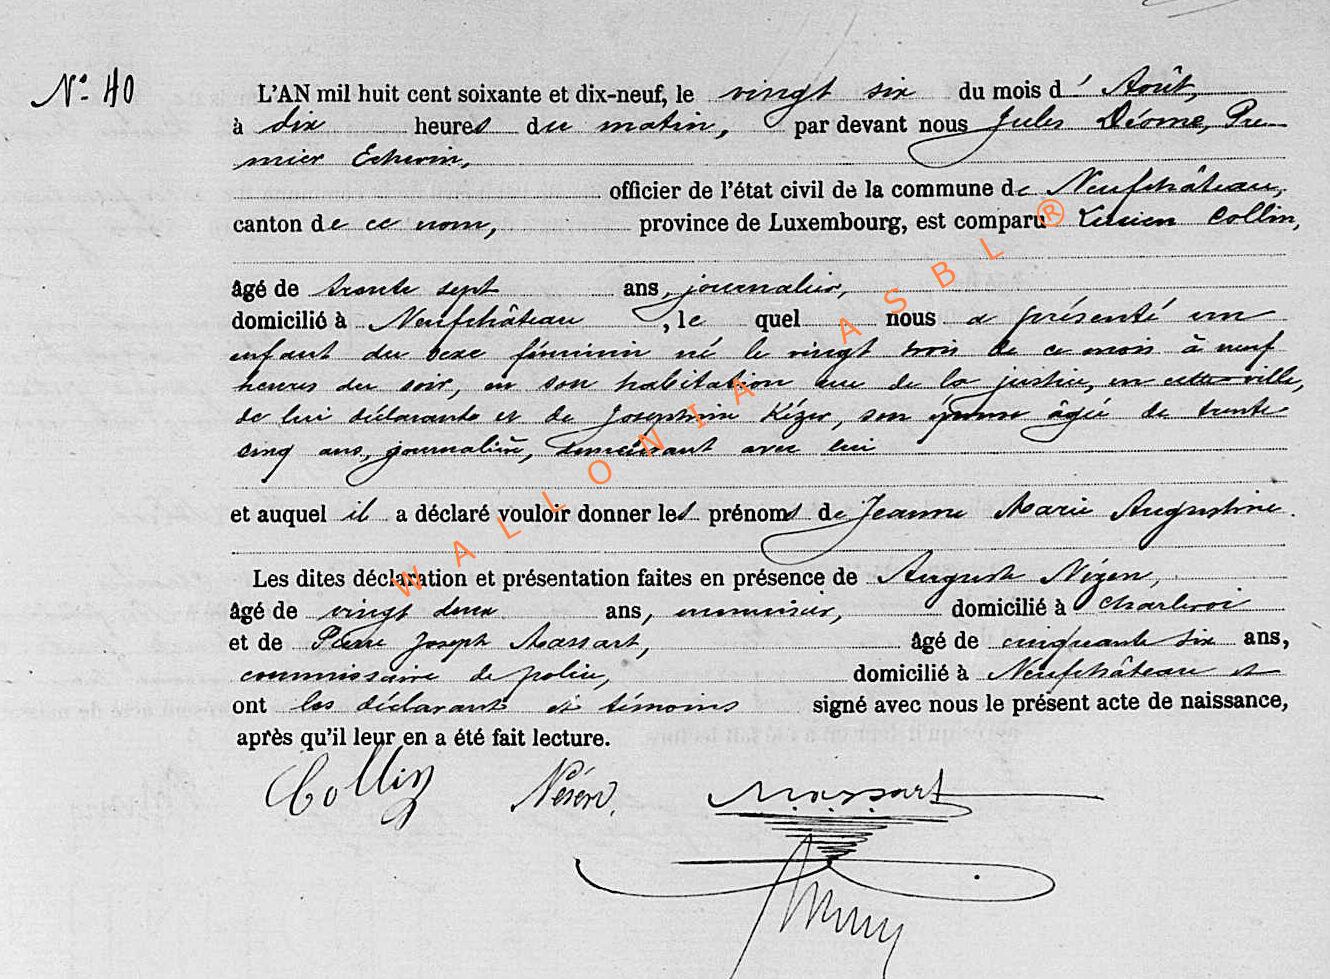 N° 40
L'AN mil huit cent soixante et dix-neuf, le vingt six du mois d' Août,
à dix heures du matin, par devant nous Jules Déome, Pre-
mier Echevin,
officier de l'état civil de la commune de Neufchâteau,
canton de ce nom, province de Luxembourg, est comparu Lucien Collin,
âgé de trente sept ans, journalier,
domicilié à Neufchâteau, le quel nous a présenté un
enfant du sexe féminin né le vingt trois de ce mois à neuf
heures du soir, en son habitation rue de la justice, en cette ville,
de lui déclarante et de Josephine Kézer, son épouse âgée de trente
cinq ans, journalière, demeurant avec lui
et auquel il a déclaré vouloir donner les prénoms de Jeanne Marie Augustine.
Les dites déclaration et présentation faites en présence de Auguste
âgé de vingt deux ans, menuisier, domicilié à Charleroi
et de Pierre Joseph Massart, âgé de cinquante six ans,
commissaire de police, domicilié à Neufchâteau et
ont les déclarant et témoins signé avec nous le présent acte de naissance,
après qu'il leur en a été fait lecture.
Collin Massart
WALLONIA ASBL ®